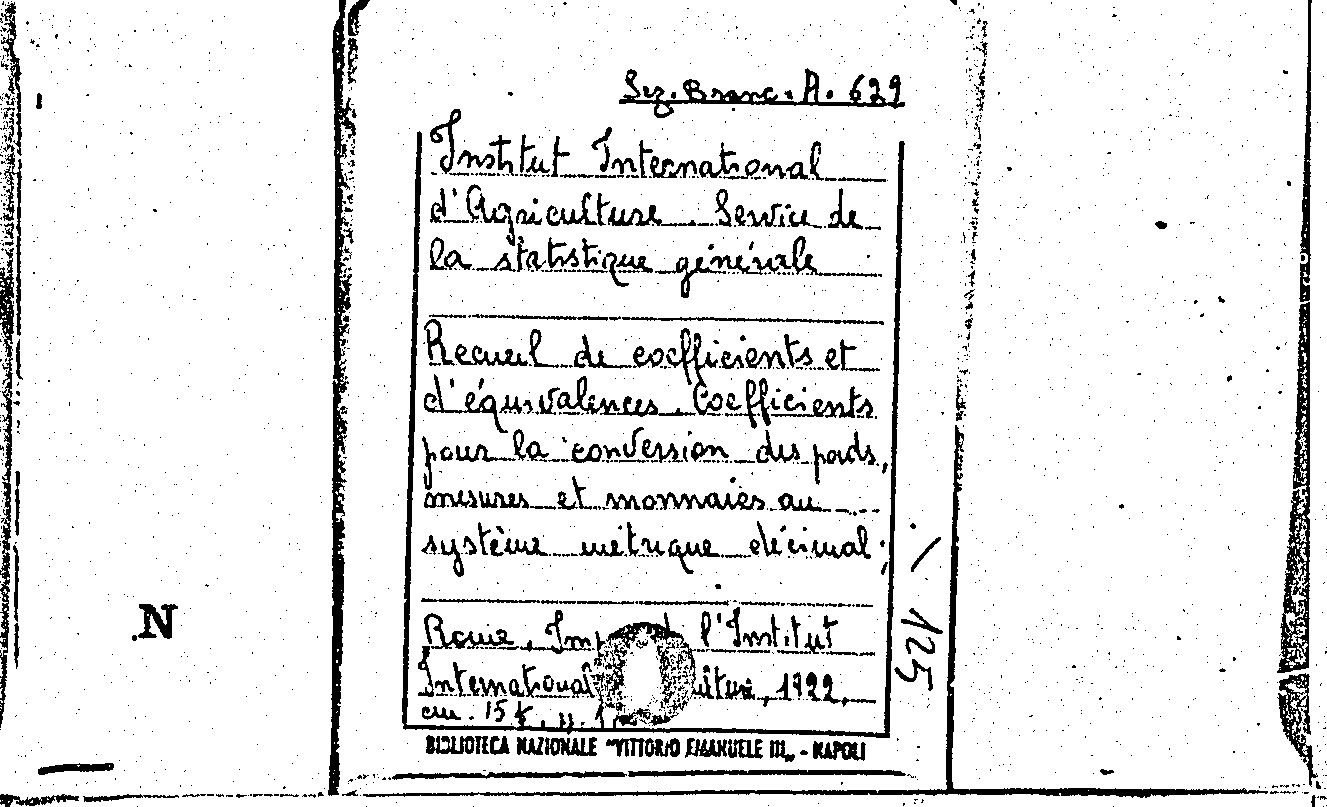 Sez. Branc. A. 629
Institut International
d'Agriculture. Service de
la statistique générale
Recueil de coefficients et
d'équivalences. Coefficients
pour la conversion des poids,
mesures et monnaies au
système métrique décimal;
Rome, l'Institut
International 1922,
cm. 15
BIBLIOTECA NAZIONALE "VITTORIO EMANUELE III„ - NAPOLI
125
N